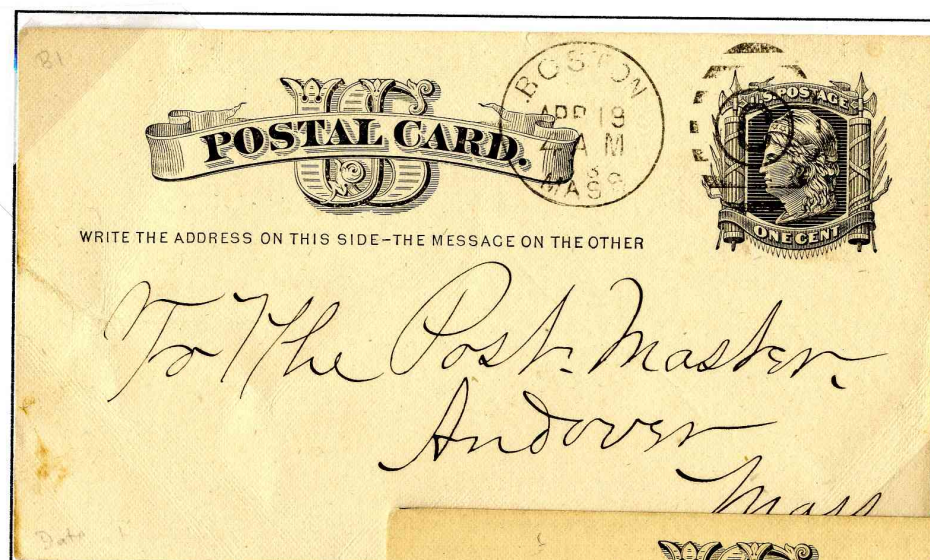 B1
US
POSTAL CARD.
BOSTON
APR 19
AM
MASS
U.S. POSTAGE
ONE CENT
WRITE THE ADDRESS ON THIS SIDE–THE MESSAGE ON THE OTHER
To The Post-Master.
Andover
Mass
Date